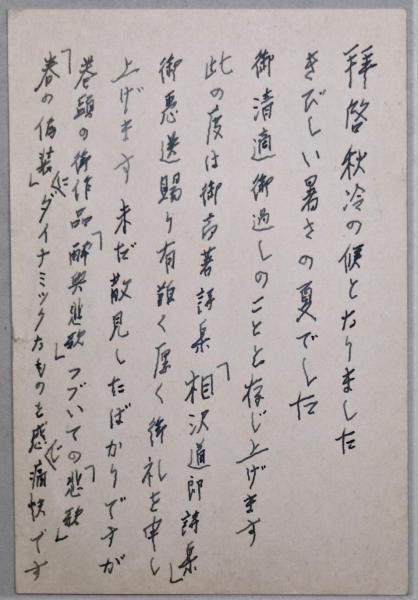 拝啓秋冷の候となりました
きびしい暑さの夏でした
御清適御過しのことと存じ上げます
此の度は御高著詩集「相沢道郎詩集」
御恵送賜り有難く厚く御礼を申し
上げます未だ散見したばかりですが
巻頭の御作品「酔興悲歌」つづいての「悲歌」
「春の偽装」にダイナミックなものを感に痛快です